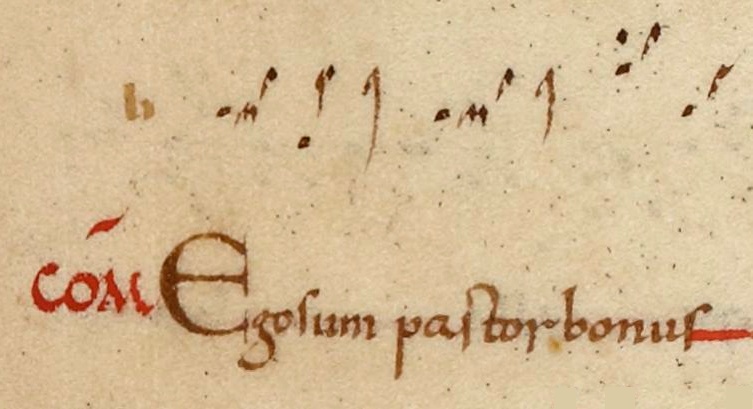 b
COM̄ Ego sum pastor bonus